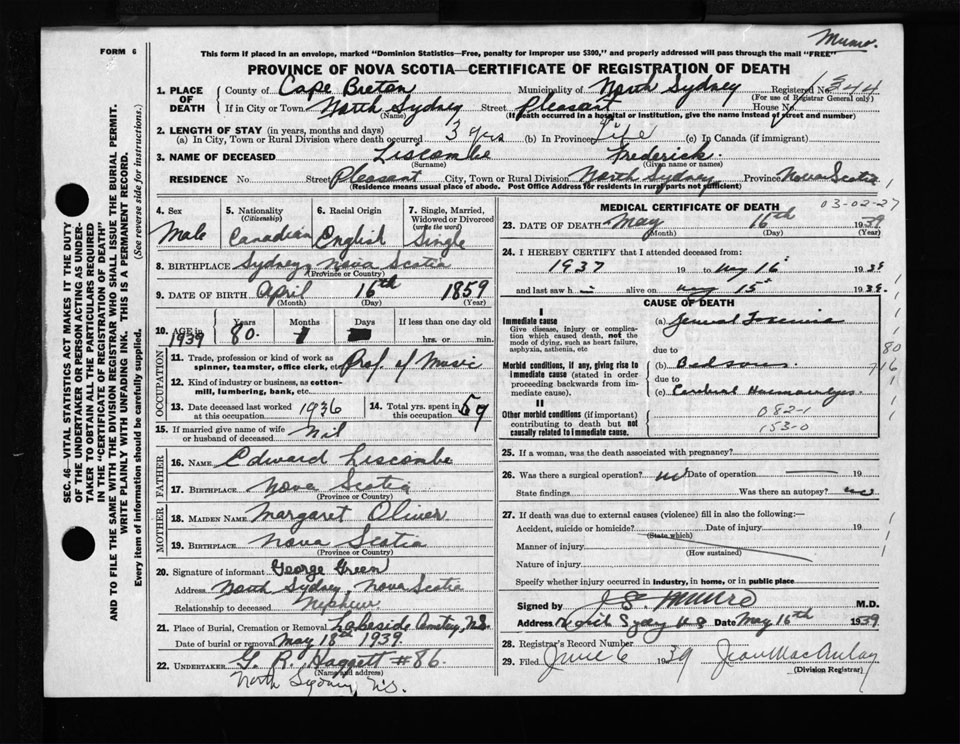 FORM 6
This form if placed in an envelope, marked "Dominion Statistics—Free, penalty for improper use $300," and properly addressed will pass through the mail "FREE"
Munro.
PROVINCE OF NOVA SCOTIA—CERTIFICATE OF REGISTRATION OF DEATH
1. PLACE OF DEATH
County of Cape Breton Municipality of North Sydney Registered No. 1344
(For use of Registrar General only)
If in City or Town North Sydney Street Pleasant House No.
(Name) (If death occurred in a hospital or institution, give the name instead of street and number)
2. LENGTH OF STAY (in years, months and days)
(a) In City, Town or Rural Division where death occurred 3 yrs (b) In Province Life (c) In Canada (if immigrant)
3. NAME OF DECEASED Liscombe Frederick.
(Surname) (Given name or names)
RESIDENCE No. Street Pleasant City, Town or Rural Division North Sydney Province Nova Scotia
(Residence means usual place of abode. Post Office Address for residents in rural parts not sufficient)
SEC. 46—VITAL STATISTICS ACT MAKES IT THE DUTY
OF THE UNDERTAKER OR PERSON ACTING AS UNDER-
TAKER TO OBTAIN ALL THE PARTICULARS REQUIRED
IN THE "CERTIFICATE OF REGISTRATION OF DEATH"
AND TO FILE THE SAME WITH THE DIVISION REGISTRAR WHO SHALL ISSUE THE BURIAL PERMIT.
WRITE PLAINLY WITH UNFADING INK. THIS IS A PERMANENT RECORD.
Every item of information should be carefully supplied. (See reverse side for instructions.)
4. Sex
Male
5. Nationality
(Citizenship)
Canadian
6. Racial Origin
English
7. Single, Married,
Widowed or Divorced
(write the word)
Single
8. BIRTHPLACE Sydney, Nova Scotia
(Province or Country)
9. DATE OF BIRTH April 16th 1859
(Month) (Day) (Year)
10. AGE in 1939
Years Months Days If less than one day old
80. hrs. or min.
OCCUPATION
11. Trade, profession or kind of work as
spinner, teamster, office clerk, etc. Prof. of Music
12. Kind of industry or business, as cotton-
mill, lumbering, bank, etc.
13. Date deceased last worked
at this occupation 1936
14. Total yrs. spent in
this occupation 59
15. If married give name of wife
or husband of deceased Nil
FATHER
16. NAME Edward Liscombe
17. BIRTHPLACE Nova Scotia
(Province or Country)
MOTHER
18. MAIDEN NAME Margaret Oliver
19. BIRTHPLACE Nova Scotia
(Province or Country)
20. Signature of informant George Green
Address North Sydney, Nova Scotia
Relationship to deceased Nephew
21. Place of Burial, Cremation or Removal Lakeside Cemetery, N.S.
Date of burial or removal May 18th 1939.
22. UNDERTAKER G. R. Haggett #86.
(Name and address)
North Sydney, N.S.
MEDICAL CERTIFICATE OF DEATH
03-02-27
23. DATE OF DEATH May 16th 1939
(Month) (Day) (Year)
24. I HEREBY CERTIFY that I attended deceased from:
1937 19 to May 16 1939
and last saw h alive on May 15 1939.
CAUSE OF DEATH
I
Immediate cause
Give disease, injury or complica-
tion which caused death, not the
mode of dying, such as heart failure,
asphyxia, asthenia, etc
(a) General Toxemia
due to
Morbid conditions, if any, giving rise to
immediate cause (stated in order
proceeding backwards from im-
mediate cause).
(b) Bed sores
due to
(c) Cerebral Haemorrhage
80
716
II
Other morbid conditions (if important)
contributing to death but not
causally related to immediate cause.
082-1
153-0
25. If a woman, was the death associated with pregnancy?
26. Was there a surgical operation? no Date of operation 19
State findings Was there an autopsy? no
27. If death was due to external causes (violence) fill in also the following:—
Accident, suicide or homicide? Date of injury 19
(State which)
Manner of injury
(How sustained)
Nature of injury
Specify whether injury occurred in industry, in home, or in public place
Signed by Munro M.D.
Address North Sydney N.S. Date May 16th 1939
28. Registrar's Record Number
29. Filed June 6 1939 Jean MacAulay
(Division Registrar)